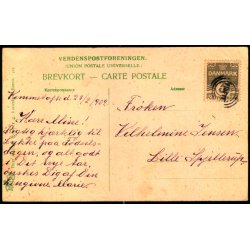 VERDENSPOSTFORENINGEN.
(UNION POSTALE UNIVERSELLE.)
BREVKORT — CARTE POSTALE
Korrespondance
Adresse
DANMARK
Kære Mine!
Rigtig hjærtelig til
Lykke paa Fødsels-
dagen, og alt godt
i Det nye Aar,
ønskes Dig af Din
hengivne Marie.
Frøken
Vilhelmine Jensen
Lille Spjellerup